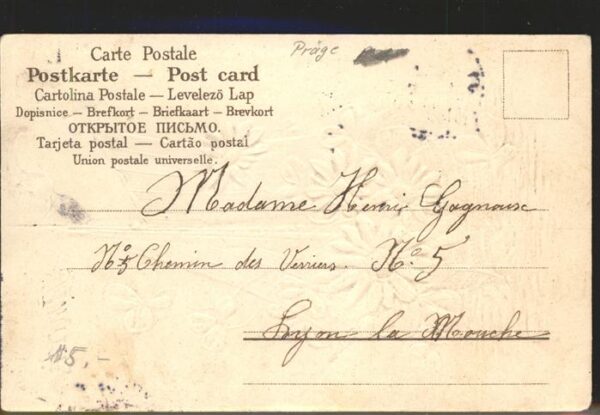 Carte Postale
Präge
Postkarte — Post card
Cartolina Postale — Levelezö Lap
Dopisnice — Brefkort — Briefkaart — Brevkort
ОТКРЫТОЕ ПИСЬМО.
Tarjeta postal — Cartão postal
Union postale universelle.
Madame Henri Gagnaux
No 5 Chemin des Verriers. No. 5
Lyon la Mouche
5,-